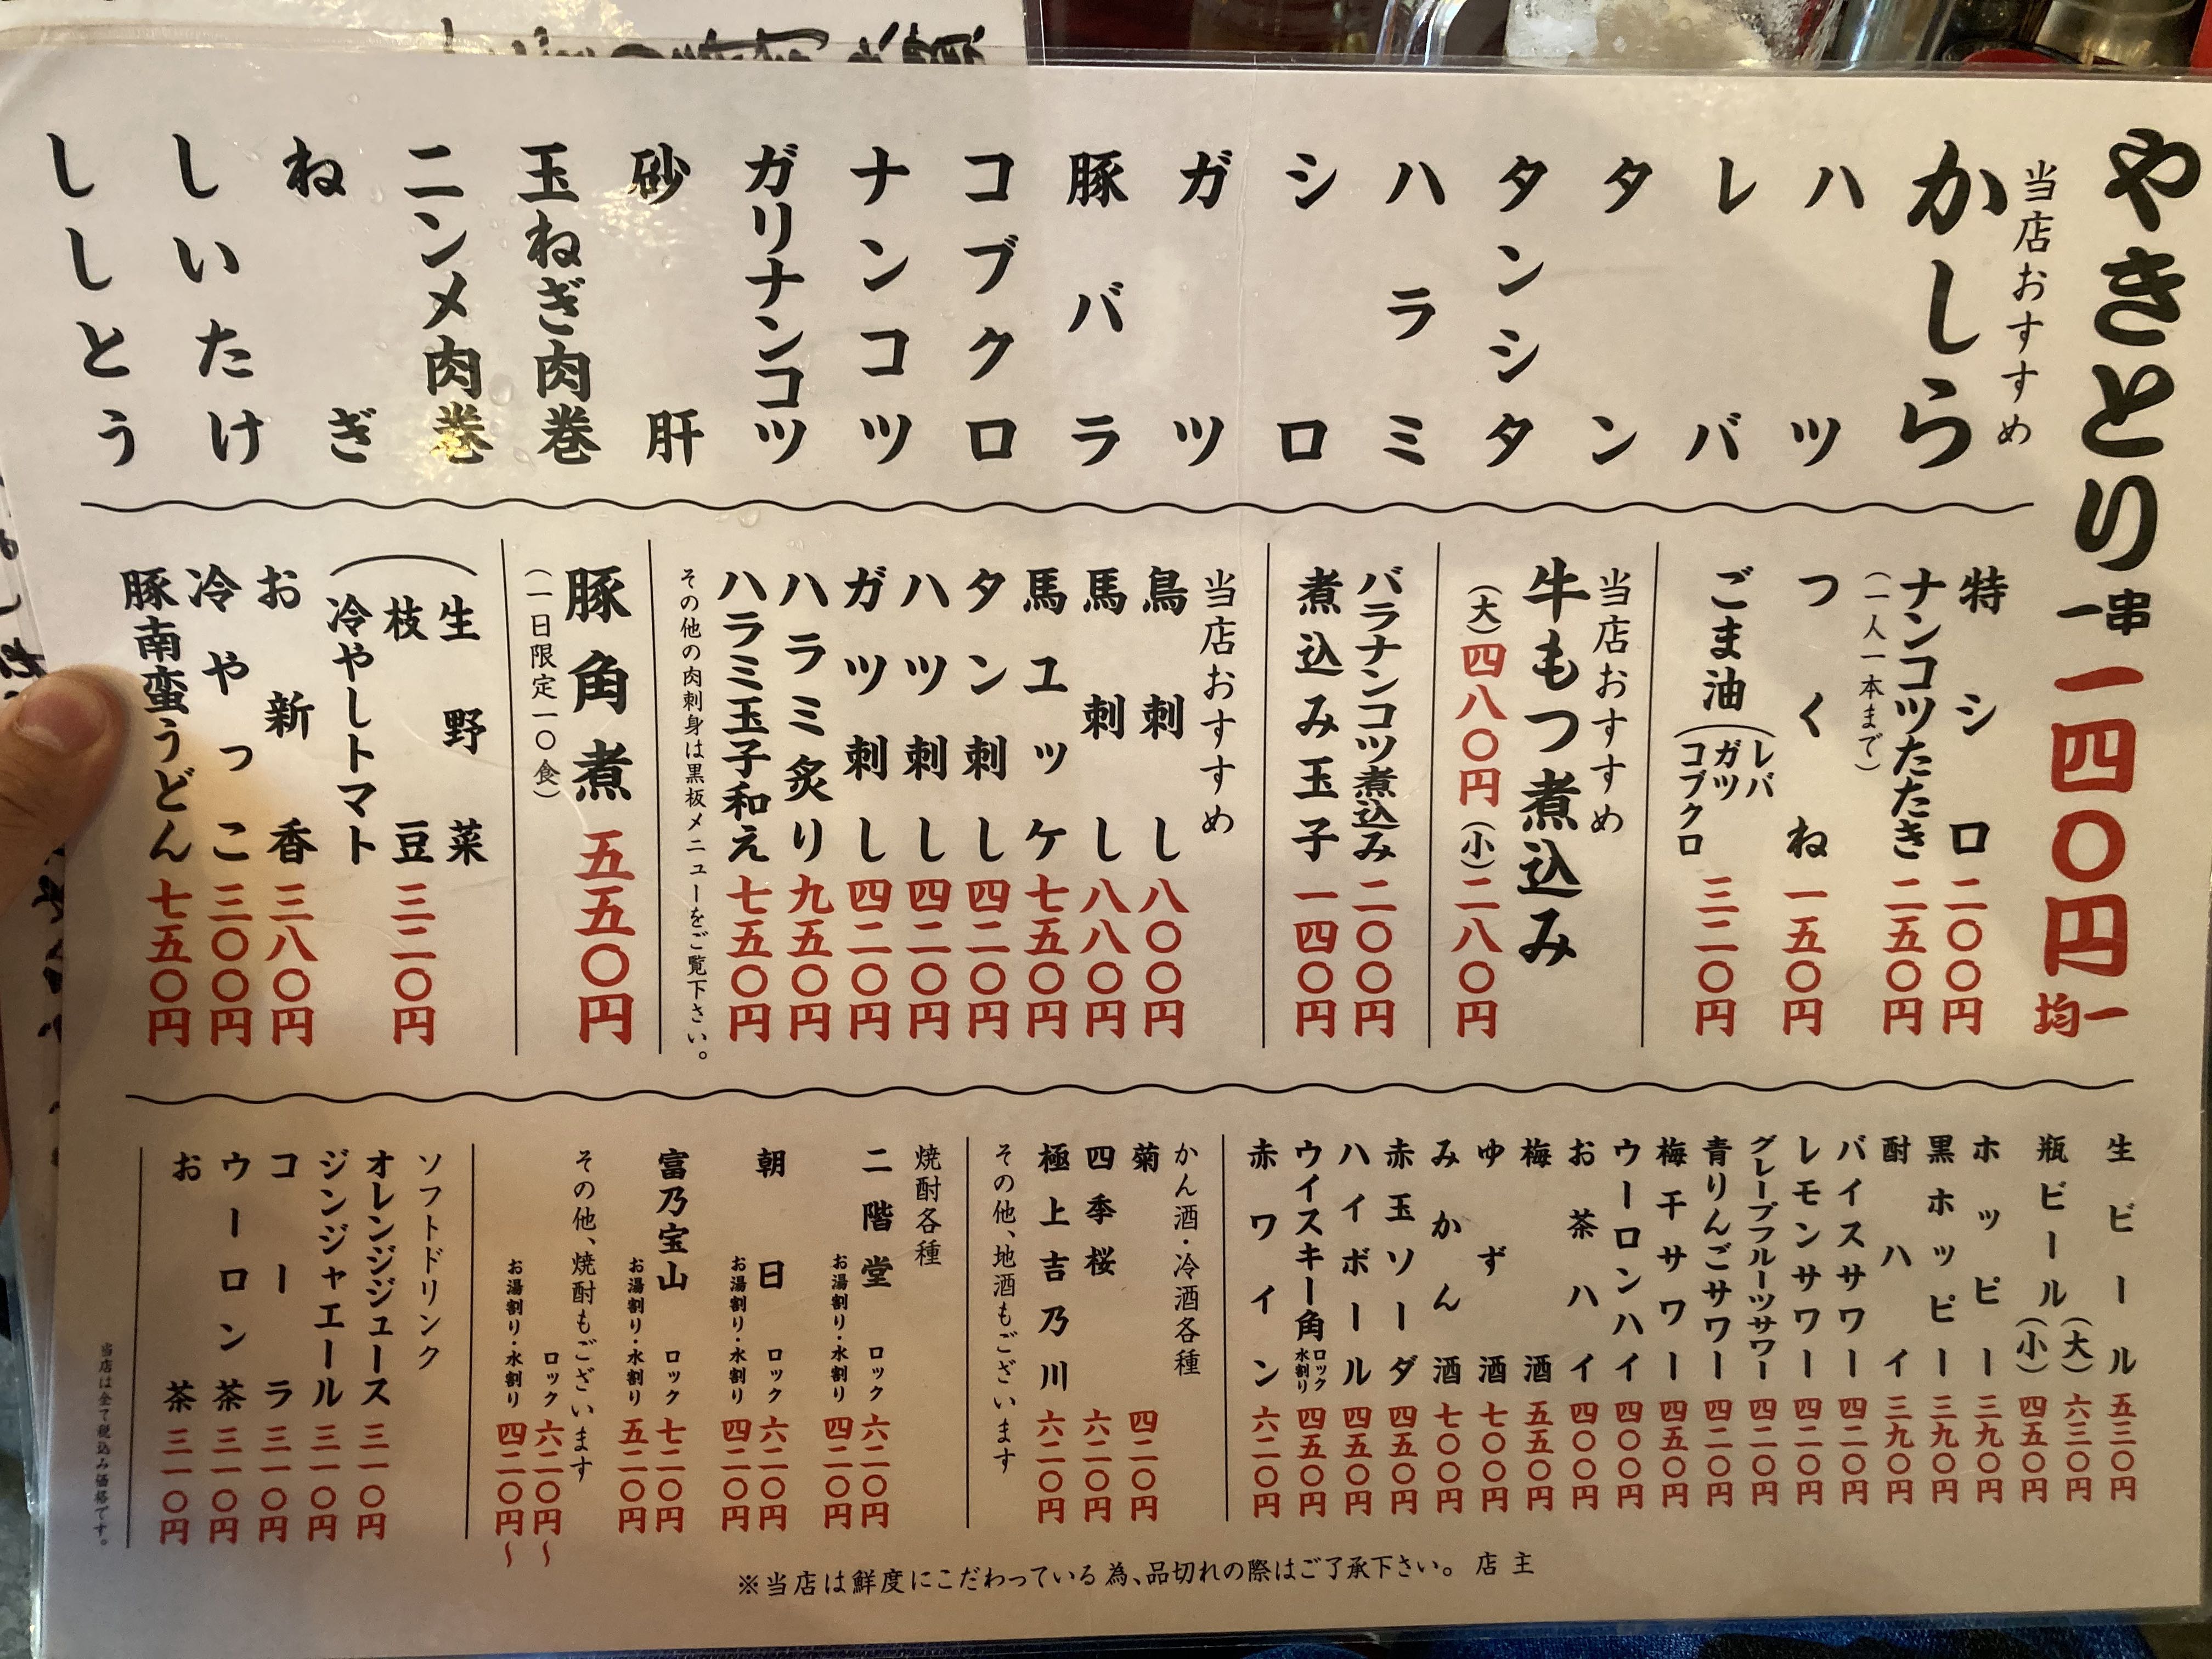 やきとり 一串 一四〇円 均一
当店おすすめ
かしら
ハツ
レバ
タン
タンシタ
ハラミ
シロ
ガツ
豚バラ
コブクロ
ナンコツ
ガリナンコツ
砂肝
玉ねぎ肉巻
ニンメ肉巻
ねぎ
しいたけ
ししとう
特シロ 二〇〇円
ナンコツたたき 二五〇円
(一人一本まで)
つくね 一五〇円
ごま油(レバ ガツ コブクロ 三二〇円
当店おすすめ
牛もつ煮込み
(大)四八〇円(小)二八〇円
バラナンコツ煮込み 二〇〇円
煮込み玉子 一四〇円
当店おすすめ
鳥刺し 八〇〇円
馬刺し 八八〇円
馬ユッケ 七五〇円
タン刺し 四二〇円
ハツ刺し 四二〇円
ガツ刺し 四二〇円
ハラミ炙り 九五〇円
ハラミ玉子和え 七五〇円
その他の肉刺身は黒板メニューをご覧下さい。
豚角煮 五五〇円
(一日限定一〇食)
生野菜
枝豆 三二〇円
冷やしトマト
お新香 三八〇円
冷やっこ 三〇〇円
豚南蛮うどん 七五〇円
生ビール 五三〇円
瓶ビール(大) 六三〇円
(小) 四五〇円
ホッピー 三九〇円
黒ホッピー 三九〇円
酎ハイ 三九〇円
バイスサワー 四二〇円
レモンサワー 四二〇円
グレープフルーツサワー 四二〇円
青りんごサワー 四二〇円
梅干サワー 四五〇円
ウーロンハイ 四〇〇円
お茶ハイ 四〇〇円
梅酒 五五〇円
ゆず酒 七〇〇円
みかん酒 七〇〇円
赤玉ソーダ 四五〇円
ハイボール 四五〇円
ウイスキー角 ロック 水割り 四五〇円
赤ワイン 六二〇円
かん酒・冷酒各種
菊 四二〇円
四季桜 六二〇円
極上吉乃川 六二〇円
その他、地酒もございます
焼酎各種
二階堂 ロック 六二〇円
お湯割り・水割り 四二〇円
朝日 ロック 六二〇円
お湯割り・水割り 四二〇円
富乃宝山 ロック 七二〇円
お湯割り・水割り 五二〇円
その他、焼酎もございます
ロック 六二〇円〜
お湯割り・水割り 四二〇円〜
ソフトドリンク
オレンジジュース 三一〇円
ジンジャエール 三一〇円
コーラ 三一〇円
ウーロン茶 三一〇円
お茶 三一〇円
当店は全て税込み価格です。
※当店は鮮度にこだわっている為、品切れの際はご了承下さい。 店主